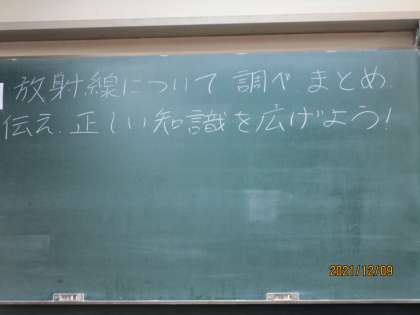 放射線について 調べ まとめ
伝え、正しい知識を広げよう!
2021/12/09